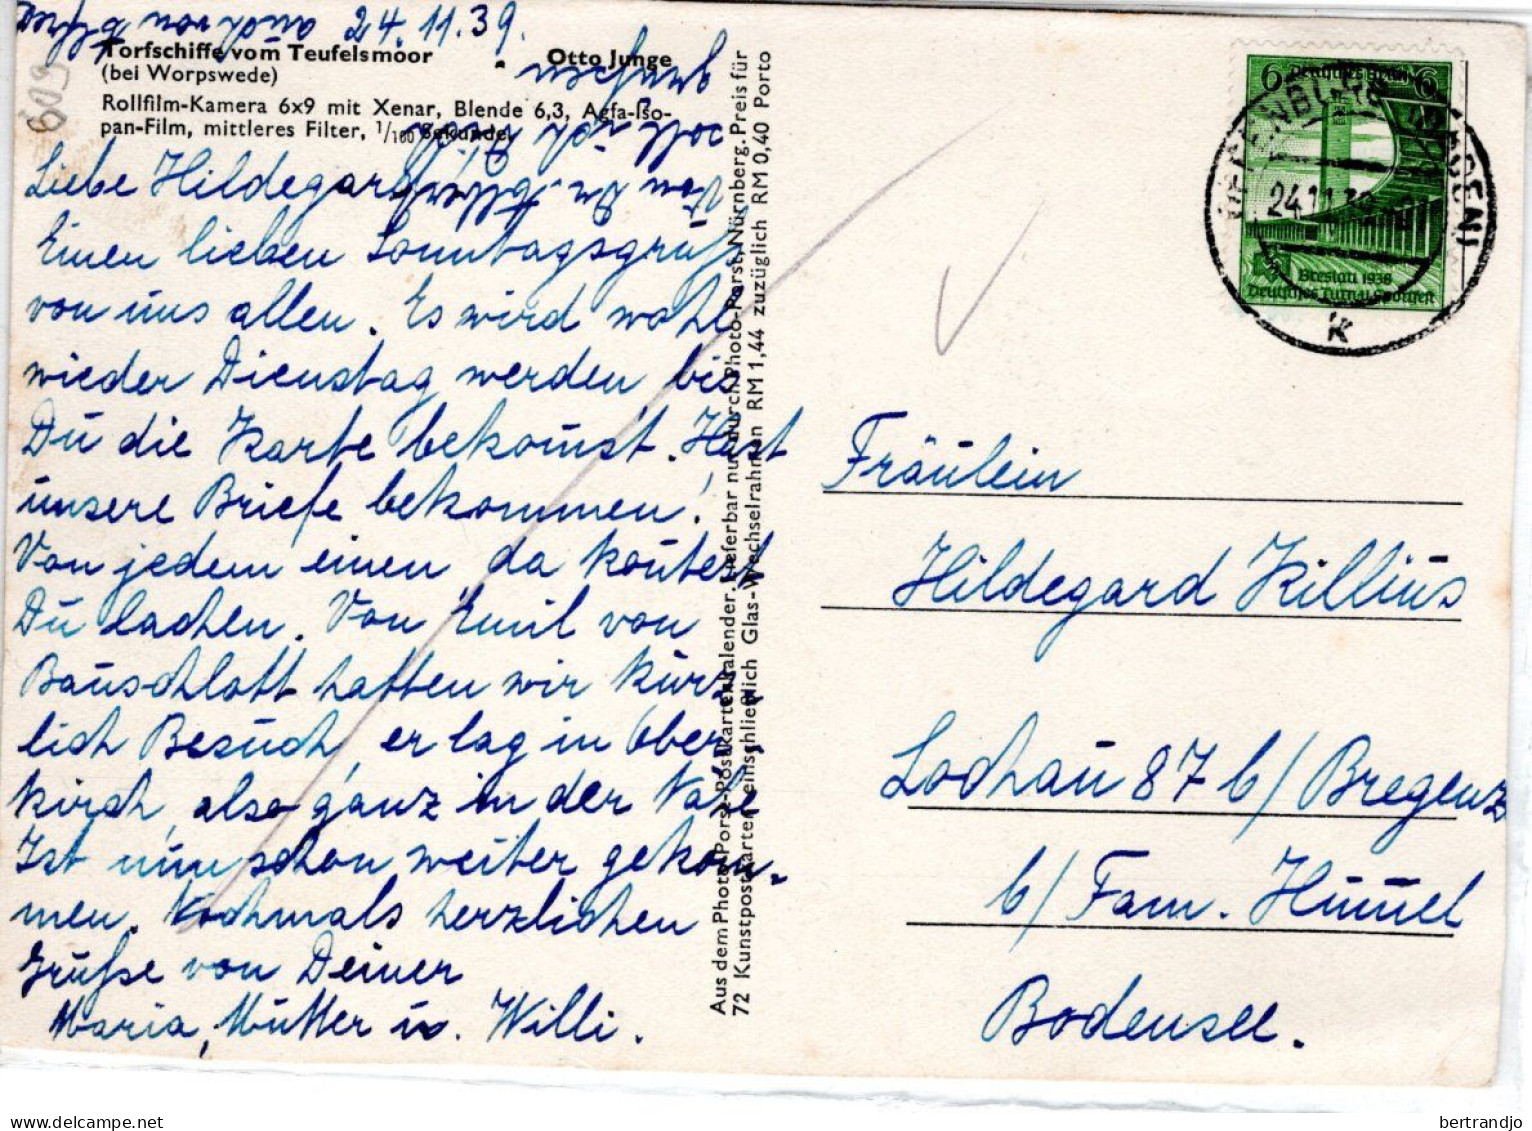 24.11.39.
Torfschiffe vom Teufelsmoor Otto Junge
(bei Worpswede)
Rollfilm-Kamera 6x9 mit Xenar, Blende 6,3, Agfa-Isso-
pan-Film, mittleres Filter, 1/100 Sekunde.
609
Liebe Hildegard!
Einen lieben Sonntagsgruß
von uns allen. Es wird wohl
wieder Dienstag werden bis
Du die Karte bekomst. Hast
unsere Briefe bekommen!
Von jedem einen da kontest
Du lachen. Von Emil von
Bauschlott hatten wir kürz
lich Besuch, er lag in Ober,
kirch, also ganz in der Nähe
Ist nun schon weiter gekom-
men. Nochmals herzlichen
Grüße von Deiner
Maria, Mutter u. Willi.
Aus dem Photo-Porst-Postkartenkalender. Lieferbar nur durch Photo-Porst, Nürnberg. Preis für
72 Kunstpostkarten einschließlich Glas-Wechselrahmen RM 1,44 zuzüglich RM 0,40 Porto
6 6
Breslau 1938
Deutsches Turn- u. Sportfest
(BADEN)
24.11.39
k
Fräulein
Hildegard Killius
Lochau 87 b/ Bregenz
b/ Fam. Hummel
Bodensee.
bertrandjo